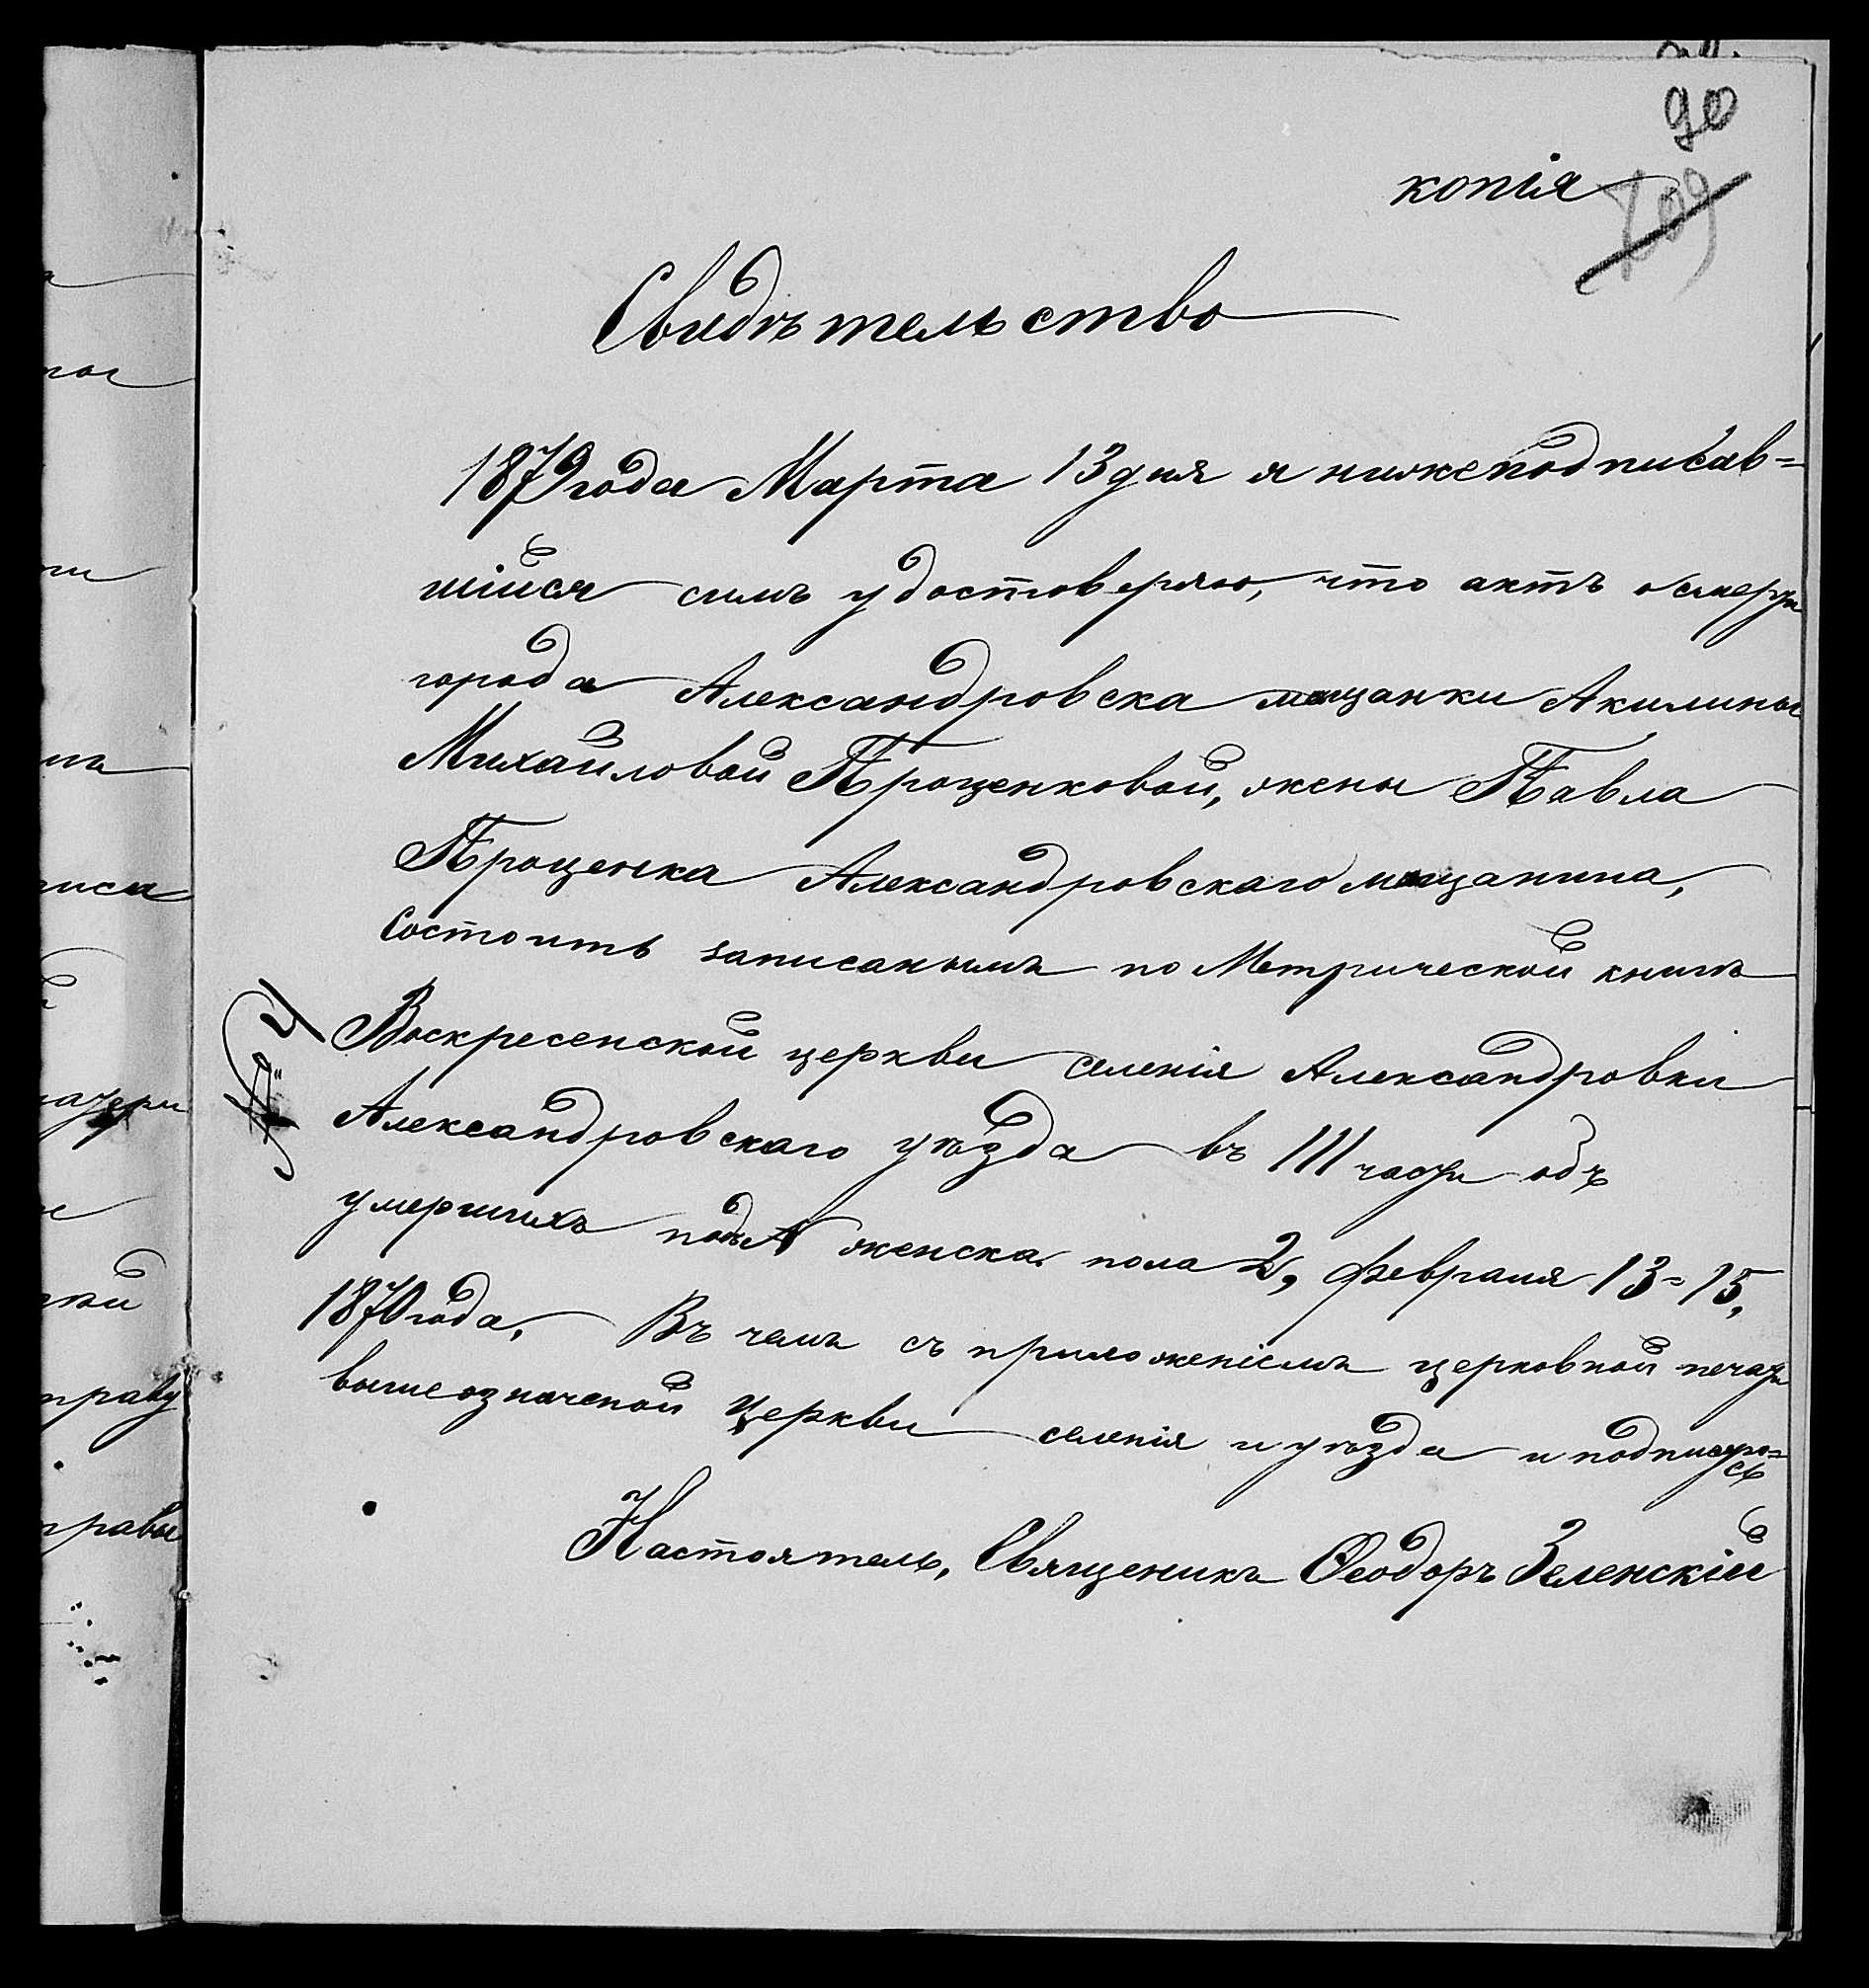 90
копія
109
Свидѣтельство
1879 года Марта 13 дня я нижеподписав=
шійся симъ удостоверяю, что актъ о смерти
города Александровска мещанки Акилины
Михайловой Проценковой, жены Павла
Проценка Александровскаго мещанина,
Состоитъ записанымъ по Метрической книгѣ
Воскресенской церкви селенія Александровки
Александровскаго уѣзда въ III части объ
умершихъ подъ № женска. пола 2, февраля 13=15,
1870 года, Въ чемъ съ приложеніемъ церковной печати
вышеозначеной Церкви селенія и уѣзда и подписую=
сь
Настоятель, Священикъ Ѳеодоръ Зеленскій